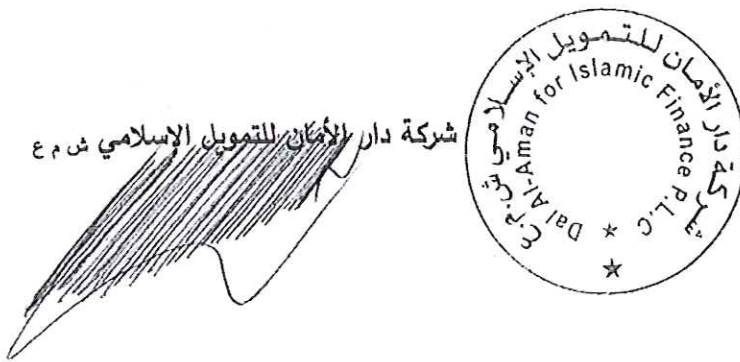 شركة دار الأمان للتمويل الإسلامي ش م ع
شركة دار الأمان للتمويل الإسلامي ش.م.ع
Dal Al-Aman for Islamic Finance P.L.C